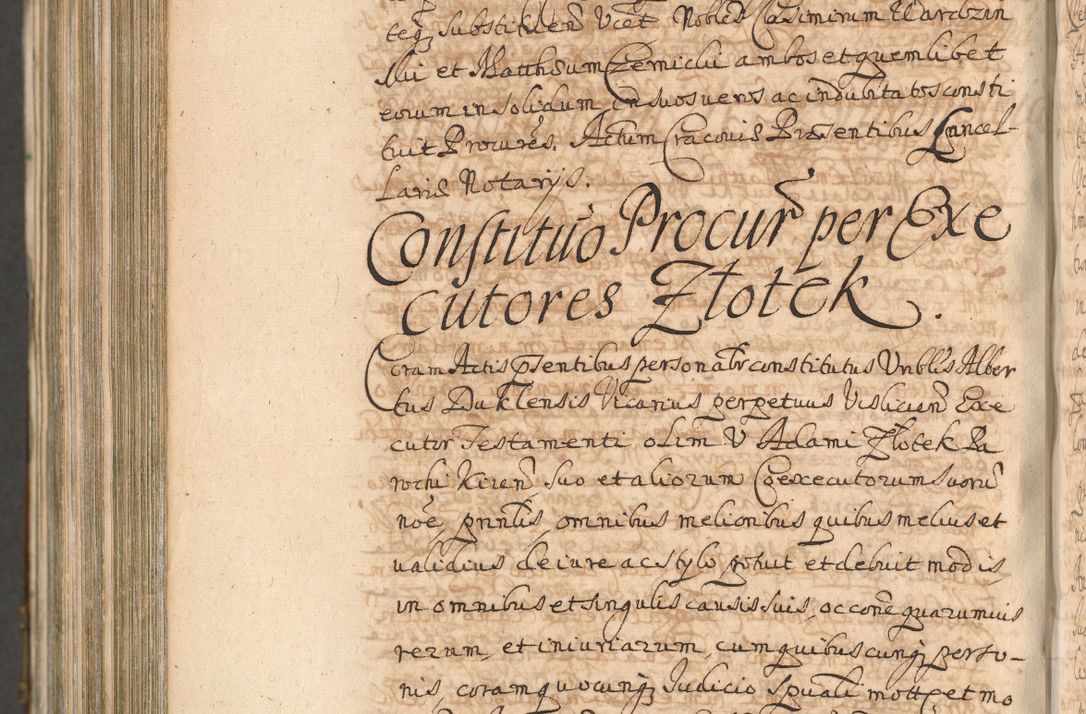 teq3 substituen Vcet Nobles Casimirum Warbzin
ski et Matthæum Zemicki ambos et quemlibet
eorum in solidum in suos veros ac indubitatos consti
tuit Procures. Actum Cracoviæ Præsentibus Cancel-
lariæ Notarijs.
Constitutio Procur per Exe
cutores Złotek.
Coram Actis pssentibus personalr constitutus Vnblis Alber
tus Duklensis Vicarius perpetuus Vislicien Exe
cutor Testamenti olim V Adami Złotek Pa
rochi Kiren suo et aliorum Coexecutorum suoru
noe, pnnlis, omnibus melioribus quibus melius et
validius de iure ac stylo potuit et debuit modis,
in omnibus et singulis causis suis, occone quarumvis
rerum, et iniuriarum, cum quibuscunq3 perso-
nis, coram quocunq3 Judicio spuali motis et mo